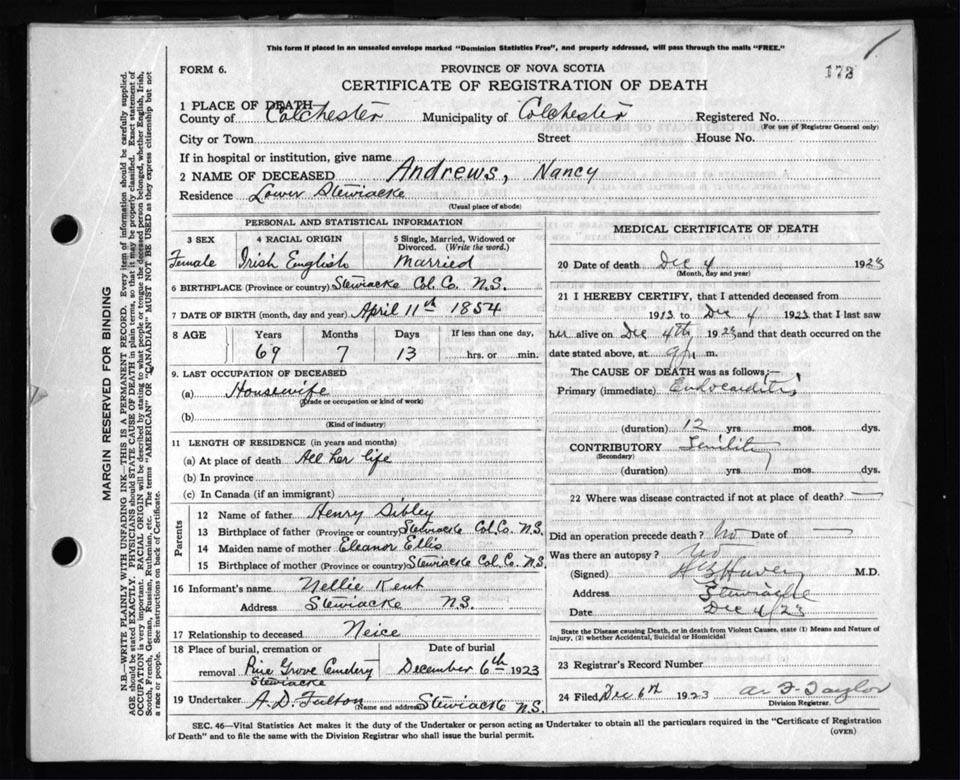 This form if placed in an unsealed envelope marked "Dominion Statistics Free", and properly addressed, will pass through the mails "FREE."
173
FORM 6.
PROVINCE OF NOVA SCOTIA
CERTIFICATE OF REGISTRATION OF DEATH
1 PLACE OF DEATH
County of Colchester Municipality of Colchester Registered No.
(For use of Registrar General only)
City or Town Street House No.
If in hospital or institution, give name
2 NAME OF DECEASED Andrews, Nancy
Residence Lower Stewiacke
(Usual place of abode)
PERSONAL AND STATISTICAL INFORMATION
3 SEX 4 RACIAL ORIGIN 5 Single, Married, Widowed or Divorced. (Write the word.)
Female Irish English Married
6 BIRTHPLACE (Province or country) Stewiacke Col. Co. N.S.
7 DATE OF BIRTH (month, day and year) April 11th 1854
8 AGE Years Months Days If less than one day,
69 7 13 hrs. or min.
9. LAST OCCUPATION OF DECEASED
(a) Housewife
(Trade or occupation or kind of work)
(b)
(Kind of industry)
11 LENGTH OF RESIDENCE (in years and months)
(a) At place of death All her life
(b) In province
(c) In Canada (if an immigrant)
Parents
12 Name of father Henry Sibley
13 Birthplace of father (Province or country) Stewiacke Col. Co. N.S.
14 Maiden name of mother Eleanor Ellis
15 Birthplace of mother (Province or country) Stewiacke Col. Co. N.S.
16 Informant's name Nellie Kent
Address Stewiacke N.S.
17 Relationship to deceased Neice
18 Place of burial, cremation or Date of burial
removal Pine Grove Cemetery December 6th 1923
Stewiacke
19 Undertaker A. D. Fulton (Name and address) Stewiacke N.S.
MEDICAL CERTIFICATE OF DEATH
20 Date of death Dec 4 1923
(Month, day and year)
21 I HEREBY CERTIFY, that I attended deceased from
1913 to Dec 4 1923 that I last saw
her alive on Dec 4th 1923 and that death occurred on
date stated above, at m.
The CAUSE OF DEATH was as follows;—
Primary (immediate) Endocarditis
(duration) 12 yrs. mos. dys.
CONTRIBUTORY Senility
(Secondary)
(duration) yrs. mos. dys.
22 Where was disease contracted if not at place of death?
Did an operation precede death? No Date of
Was there an autopsy? No
(Signed) M.D.
Address Stewiacke
Date Dec 4/23
State the Disease causing Death, or in death from Violent Causes, state (1) Means and Nature of
Injury, (2) whether Accidental, Suicidal or Homicidal
23 Registrar's Record Number
24 Filed Dec 6th 1923 Taylor
Division Registrar.
SEC. 46—Vital Statistics Act makes it the duty of the Undertaker or person acting as Undertaker to obtain all the particulars required in the "Certificate of Registration
of Death" and to file the same with the Division Registrar who shall issue the burial permit.
(OVER)
MARGIN RESERVED FOR BINDING
N.B.—WRITE PLAINLY WITH UNFADING INK—THIS IS A PERMANENT RECORD. Every item of information should be carefully supplied.
AGE should be stated EXACTLY. PHYSICIANS should STATE CAUSE OF DEATH in plain terms, so that it may be properly classified. Exact statement of
OCCUPATION is very important. RACIAL ORIGIN will be described by stating to what people or tongue the deceased person belonged, whether English, Irish,
Scotch, French, German, Russian, Ruthenian, etc. The terms "AMERICAN" OR "CANADIAN" MUST NOT BE USED as they express citizenship but not
a race or people. See instructions on back of Certificate.